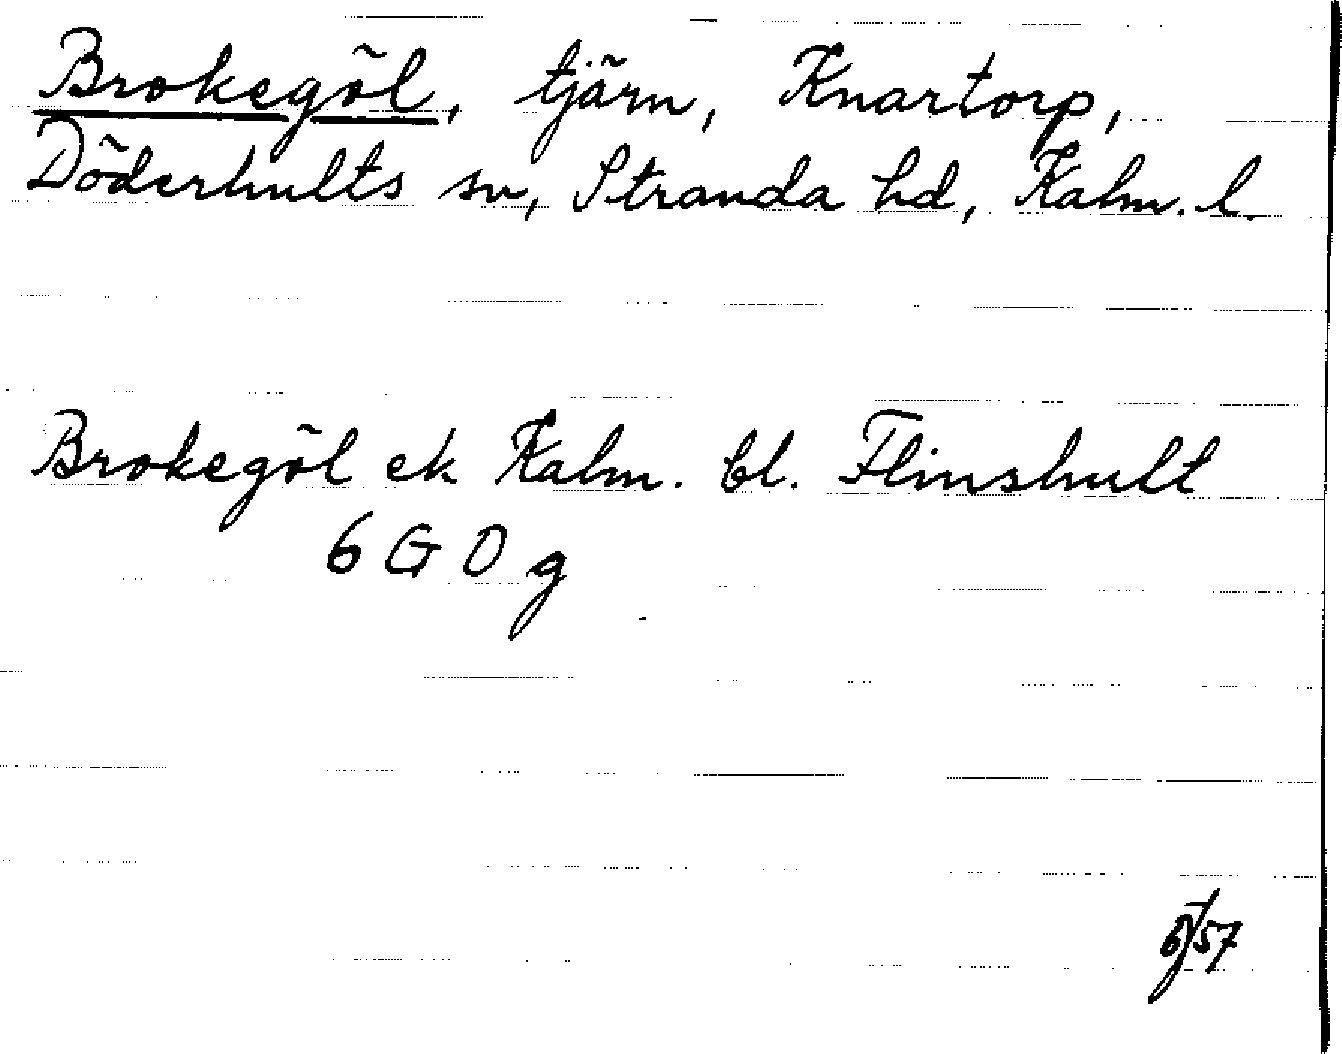 Brokegöl, tjärn, Knartorp,
Döderhults sn, Stranda hd, Kalm. l.
Brokegöl ek Kalm. bl. Flinshult
6 G 0 g